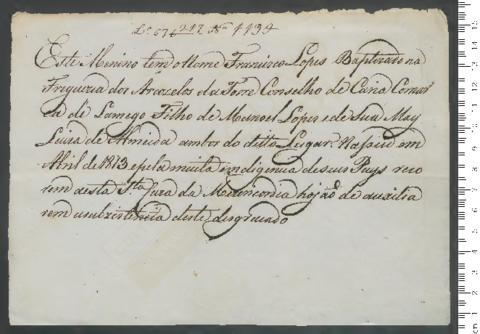 Lº 674 212 Nº 1139
Este Menino tem o Nome Francisco Lopes Baptizado na
Freguezia dos Arcozelos da Torre Conselho de Caria Comar
ca de Lamego Filho de Manoel Lopes e de Sua May
Luiza de Almeida ambos do ditto Lugar. Nasceu em
Abril de 1813 e pela muita indigencia de seus Pays reco
rem a esta Sta Caza da Mizericordia hoje de auxilia
rem a subzistencia deste desgraçado